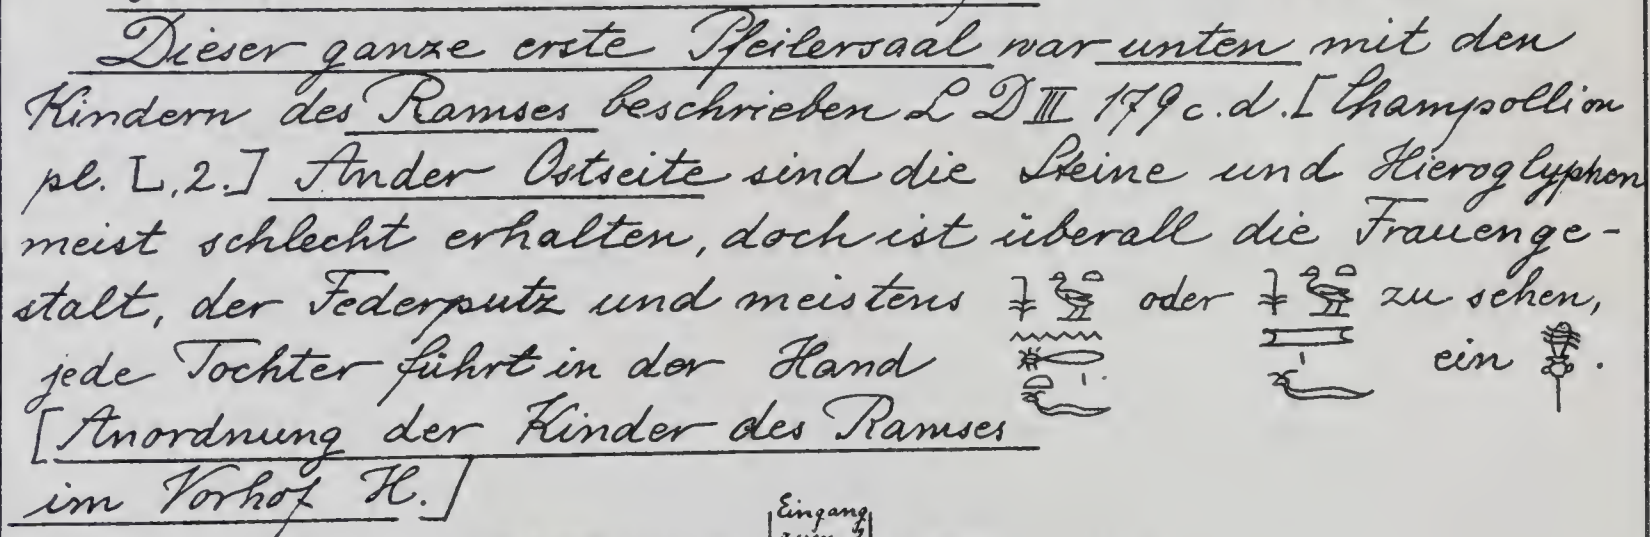 Dieser ganze erste Pfeilersaal war unten mit den
Kindern des Ramses beschrieben L D III 179 c. d. [Champollion
pl. L, 2.] An der Ostseite sind die Steine und Hieroglyphen
meist schlecht erhalten, doch ist überall die Frauenge-
stalt, der Federputz und meistens oder zu sehen,
jede Tochter führt in der Hand ein .
[Anordnung der Kinder des Ramses
im Vorhof H.]
Eingang